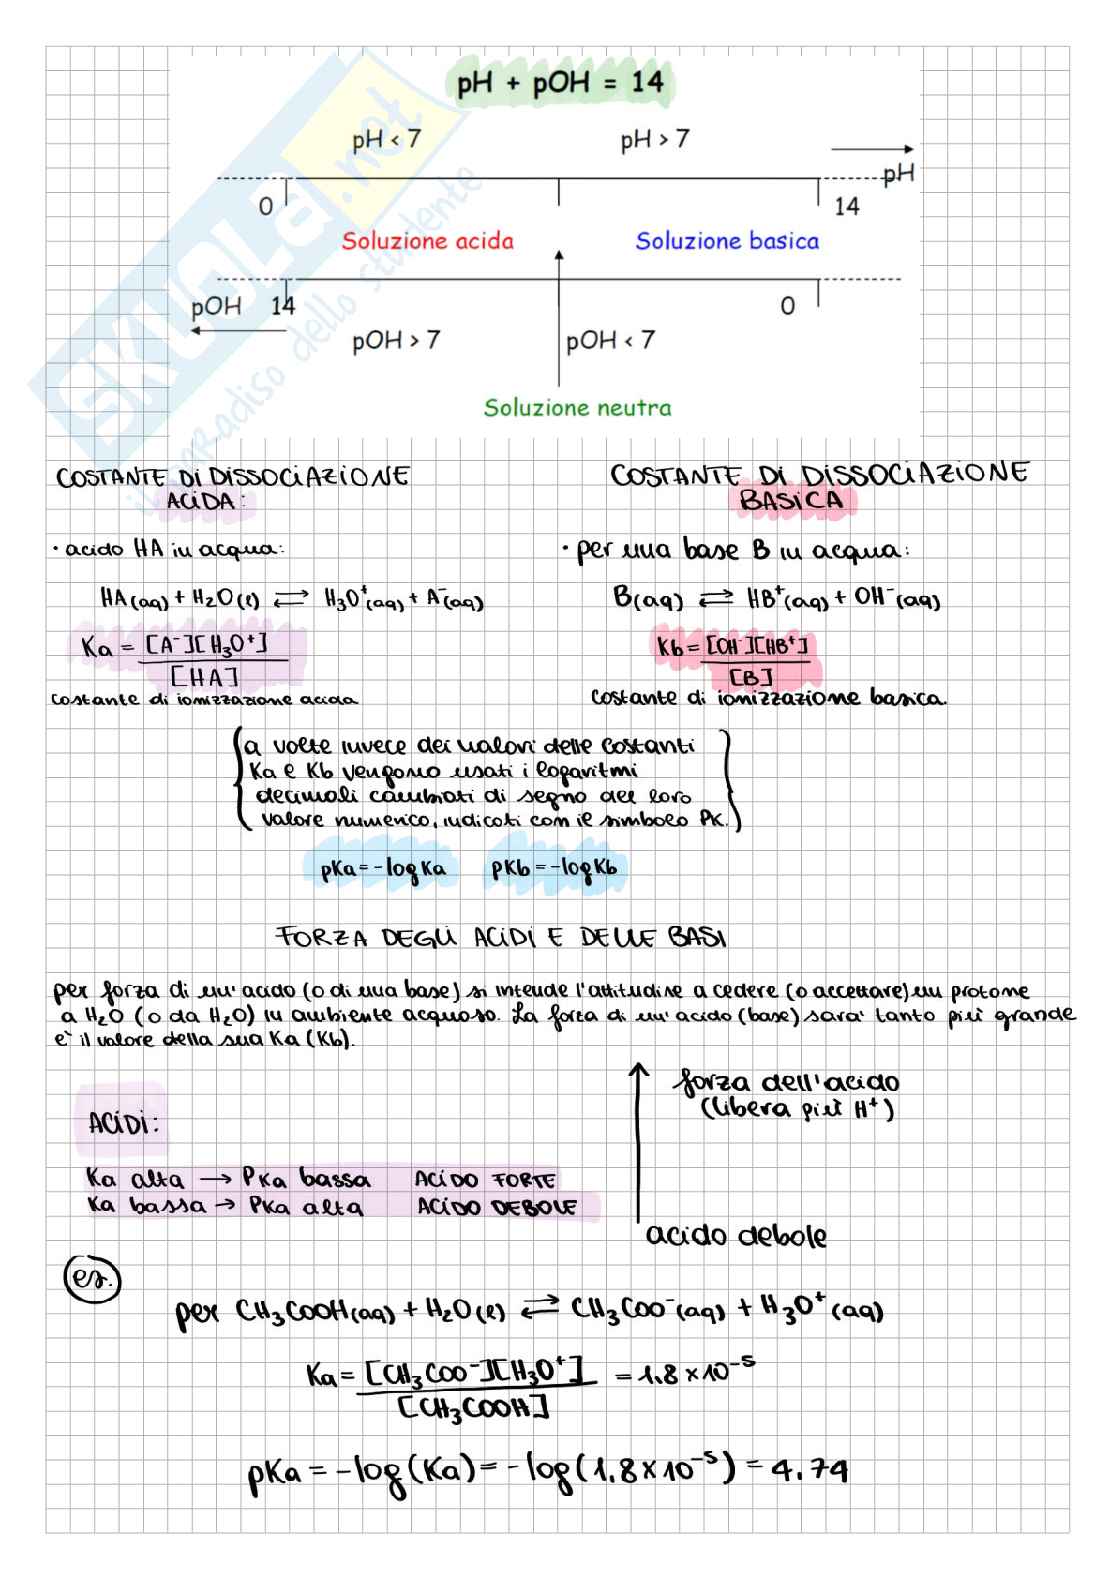 pH + pOH = 14
pH < 7
pH > 7
pH
0
14
Soluzione acida
Soluzione basica
pOH
14
0
pOH > 7
pOH < 7
Soluzione neutra
SKUOLA.net
il paradiso dello studente
COSTANTE Di DiSSOCiAZiONE
ACiDA:
• acido HA in acqua:
HA(aq) + H₂O(l) ⇄ H₃O⁺(aq) + A⁻(aq)
Ka = [A⁻][H₃O⁺]
[HA]
costante di ionizzazione acida
COSTANTE Di DiSSOCiAZiONE
BASiCA
• per una base B in acqua:
B(aq) ⇄ HB⁺(aq) + OH⁻(aq)
Kb = [OH⁻][HB⁺]
[B]
costante di ionizzazione basica.
a volte invece dei valori delle costanti
Ka e Kb vengono usati i logaritmi
decimali cambiati di segno del loro
valore numerico, indicati con il simbolo PK.
pKa = -log Ka
pKb = -log Kb
FORZA DEGLi ACiDi E DELLE BASi
per forza di un' acido (o di una base) si intende l'attitudine a cedere (o accettare) un protone
a H₂O (o da H₂O) in ambiente acquoso. La forza di un' acido (base) sara' tanto più grande
e' il valore della sua Ka (Kb).
ACiDi:
Ka alta → PKa bassa ACiDO FORTE
Ka bassa → PKa alta ACiDO DEBOLE
forza dell'acido
(libera più H⁺)
acido debole
es.
per CH₃COOH(aq) + H₂O(l) ⇄ CH₃COO⁻(aq) + H₃O⁺(aq)
Ka = [CH₃COO⁻][H₃O⁺] = 1.8 × 10⁻⁵
[CH₃COOH]
pKa = -log(Ka) = -log(1.8 × 10⁻⁵) = 4.74